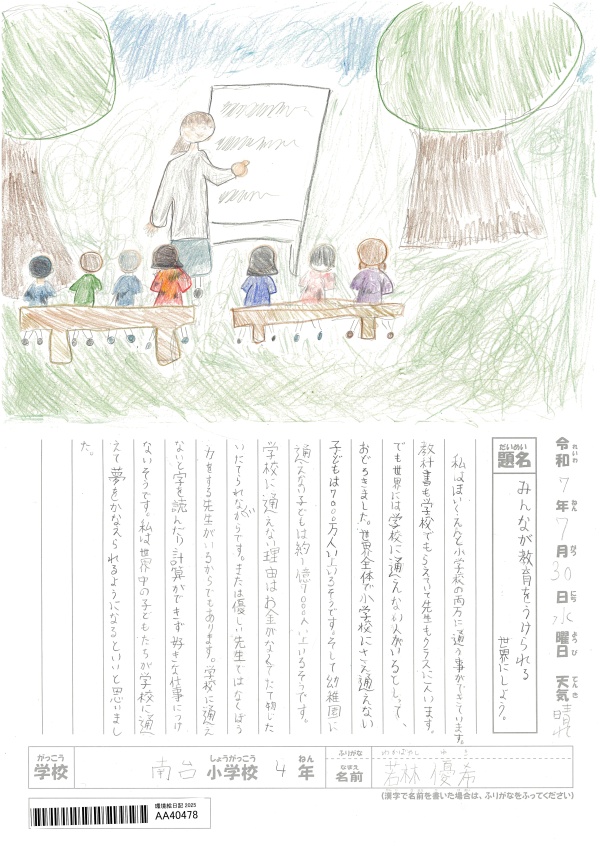 令和7年7月30日水曜日 天気晴れ
れいわ ねん がつ にち ようび てんき
だいめい
題名
みんなが教育をうけられる
世界にしよう。
私はほいくえんと小学校の両方に通う事ができています。
教科書も学校でもらえていて先生もクラスに一人います。
でも世界には学校に通えない人がいるとしって、
おどろきました。世界全体で小学校にさえ通えない
子どもは7000万人以上いるそうです。そして幼稚園に
通えない子どもは約一億7000人以上いるそうです。
学校に通えない理由はお金がなくて
いたてられないからです。または優しい先生ではなくぼう
力をする先生がいるからでもあります。学校に通え
ないと字を読んだり計算ができず好きな仕事につけ
ないそうです。私は世界中の子どもたちが学校に通
えて夢をかなえられるようになるといいと思いまし
た。
がっこう
学校
南台
しょうがっこう
小学校
4
ねん
年
ふりがな
わかばやし ゆき
なまえ
名前
若林 優希
(漢字で名前を書いた場合は、ふりがなをふってください)
環境絵日記 2025
AA40478